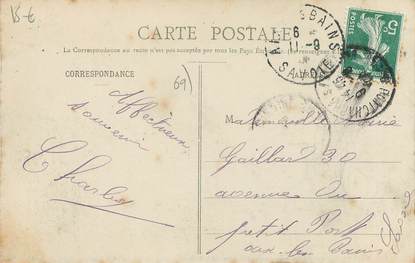 15-€
CARTE POSTALE
La Correspondance au recto n'est pas acceptée par tous les Pays
5c
BAINS
6
11-9
SAVOIE
CORRESPONDANCE
69)
affectueux
souvenir
Charles
Mademoiselle Marie
Gaillar 30
avenue du
petit Port
aix les Bains
Savoie